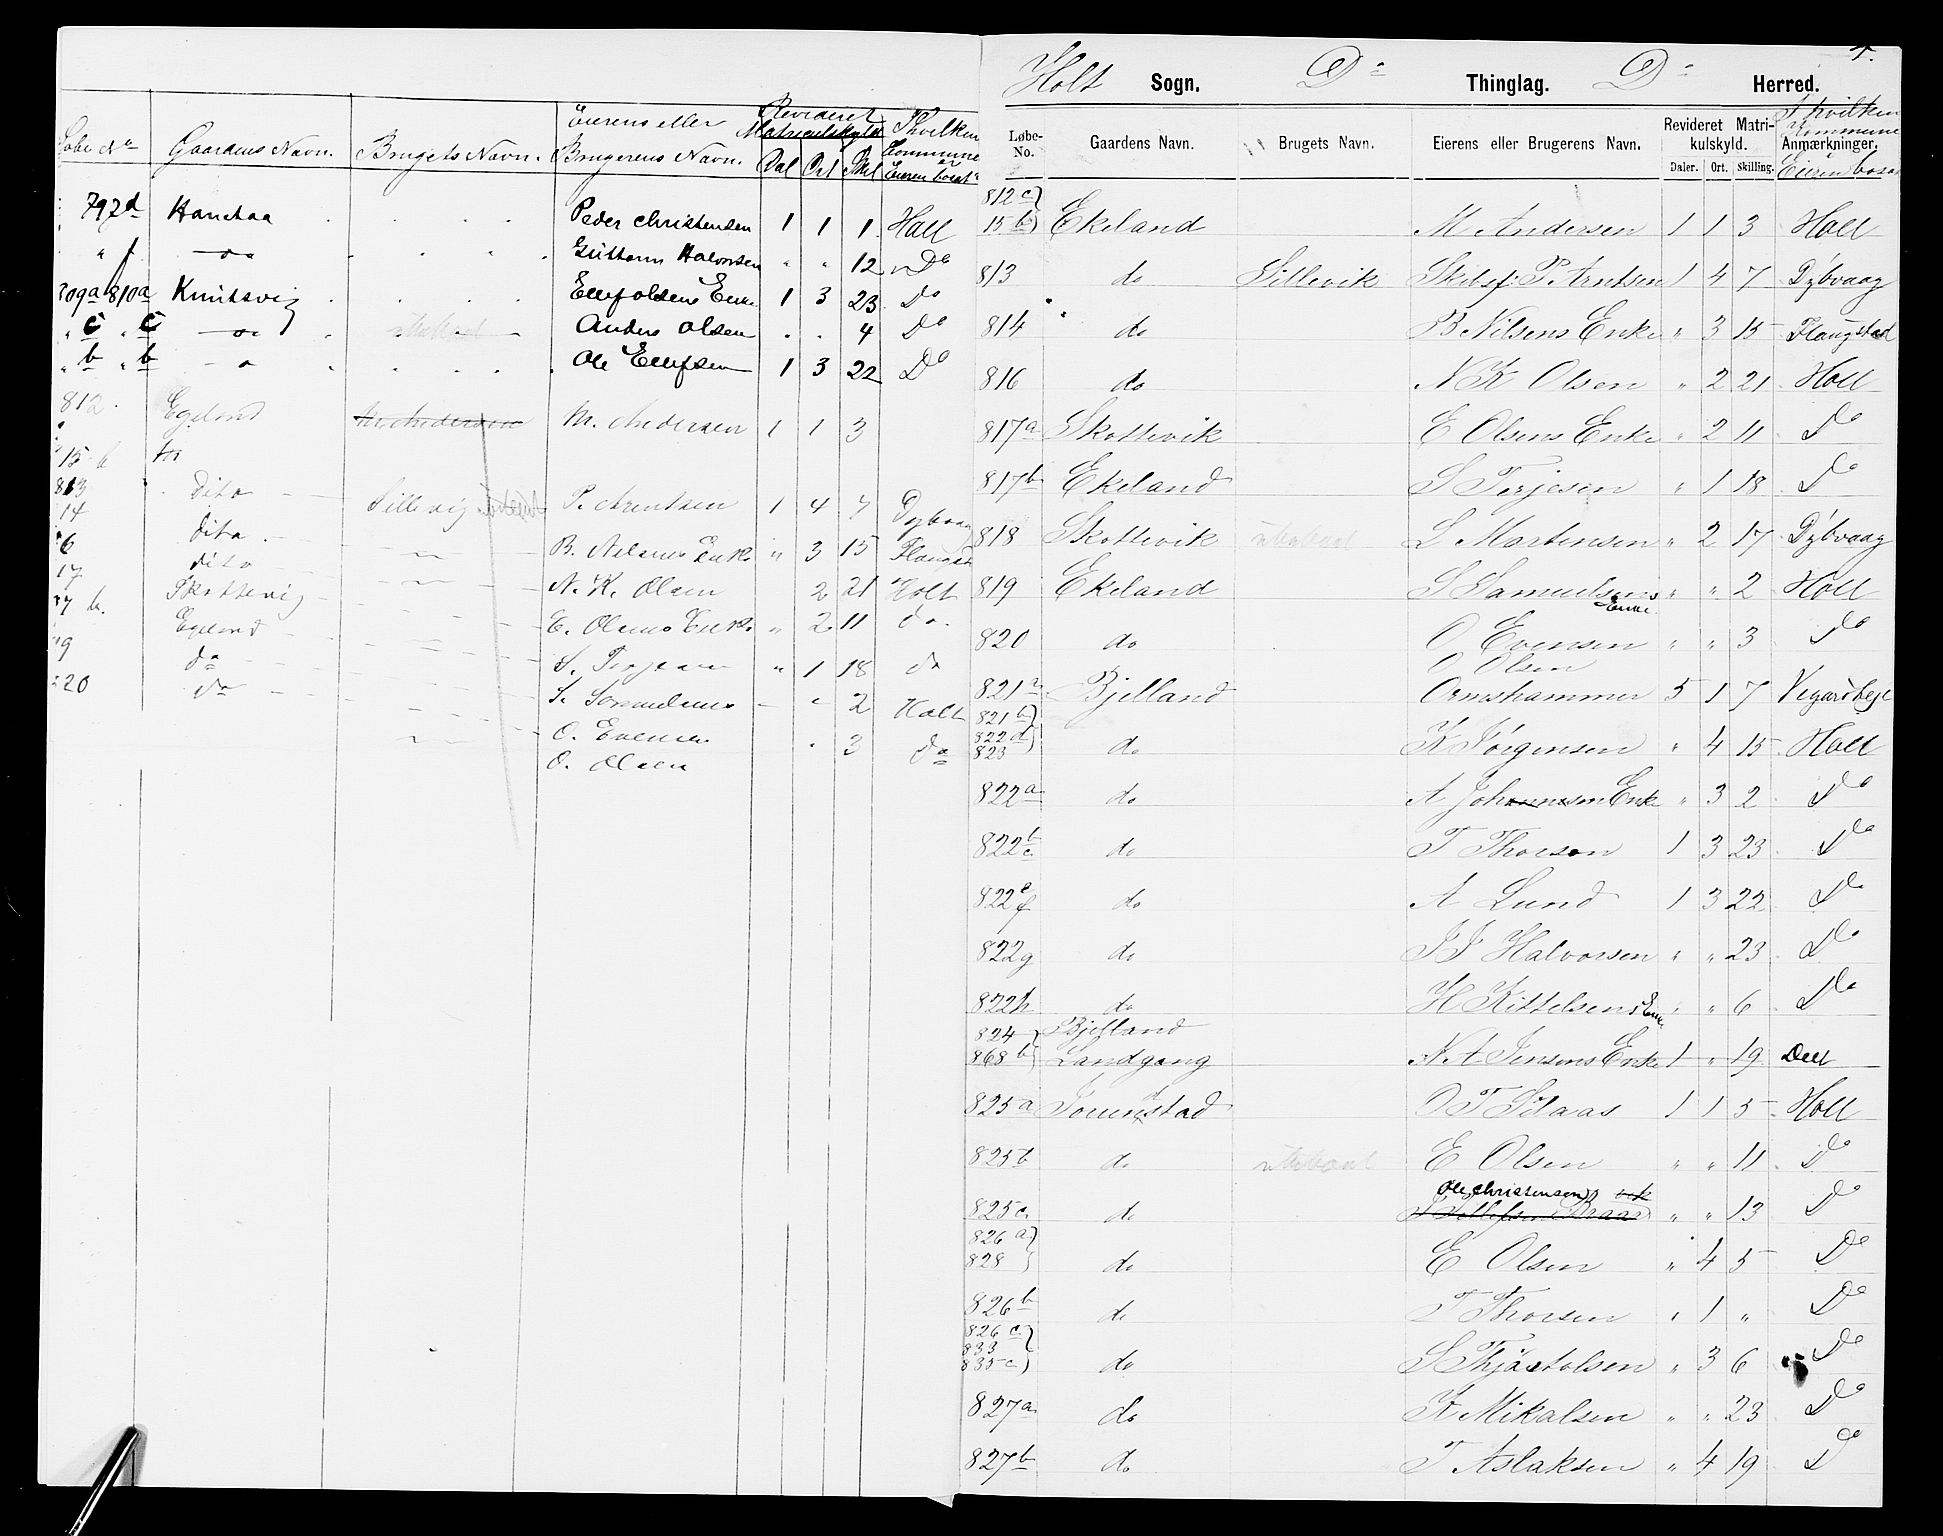 Løbe No Gaardens Navn. Brugets Navn. Eierens eller Brugerens Navn. Revideret Matriculskyld Dal Ort Skil I hvilken Kommune er Eieren bosat
797d Hanetaa Peder Christensen 1 1 1 Holt
" f do Guttorm Halvorsen " " 12 Do
809a 810a Knutsvig Ellef olsens Enke 1 3 23 Do
" c " c do Anders Olsen . . 4 Do
" b " b do Ole Ellefsen 1 3 22 Do
812 Egeland M. Andersen M. Andersen 1 1 3
15 b
813 Dito Sillevig P. Arentsen 1 4 7 Dybvaag
14 Dito B. Nelsens Enke " 3 15 Flangst
6 Dito N. K. Olsen 2 21 Holt
17 Skottevig E. Olsens Enke " 2 11 do
7 b. Egeland S. Terjesen " 1 18 do
19 do S. Samuelsens " 2 Holt
20 do O. Evensen 3 do
O. Olsen
4.
Holt Sogn. Do Thinglag. Do Herred.
Løbe-No. Gaardens Navn. Brugets Navn. Eierens eller Brugerens Navn. Revideret Matrikulskyld. Daler. Ort. Skilling. Anmærkninger. I hvilken Kommune Eieren bosat
812 c
15 b Ekeland M Andersen 1 1 3 Holt
813 do Sillevik Skibsf: P. Arntsen 1 4 7 Dybvaag
814 do B Nilsens Enke " 3 15 Flangstad
816 do N K Olsen " 2 21 Holt
817a Skottevik E Olsens Enke " 2 11 Do
817b Ekeland S Terjesen " 1 18 Do
818 Skottevik ubeboet L Martensen " 2 17 Dybvaag
819 Ekeland S Samuelsens Enke " " 2 Holt
820 do O Evensen " " 3 Do
O Olsen
821a Bjelland Ormshammer 5 1 7 Vegardheje
821b
822d
823 do K Jørgensen " 4 15 Holt
822a do A Johannesen Enke " 3 2 Do
822b c do T Thorsen 1 3 23 Do
822e f do A Lund 1 3 22 Do
822g do J J Halvorsen " " 23 Do
822h do H Kittelsens Enke " " 6 Do
824 Bjelland
868b Landgang N A Jensens Enke 1 " 19 Do
825a O T Filaas 1 1 5 Holt
825b do ubeboet E Olsen " " 11 Do
Ole Christensen
825c do " " 13 Do
826a
828 do E Olsen " 4 5 Do
826b do T Thorsen " 1 " Do
826c
833
835c do S Thjøstolsen " 3 6 Do
827a do K Mikalsen " " 23 Do
827b do T Aslaksen " 4 19 Do